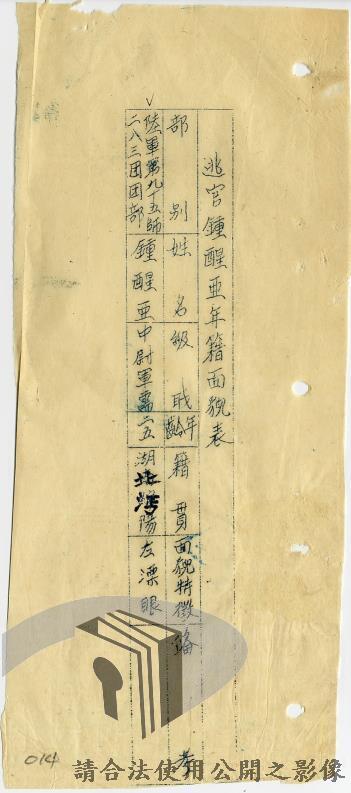 逃官鍾醒亜年籍面貌表
部別 姓名 級職 年齡 籍貫 面貌特徵 備考
陸軍第九十五師二八三团团部 鍾醒亜 中尉軍需 二五 湖北 陽 左漂眼
014
請合法使用公開之影像